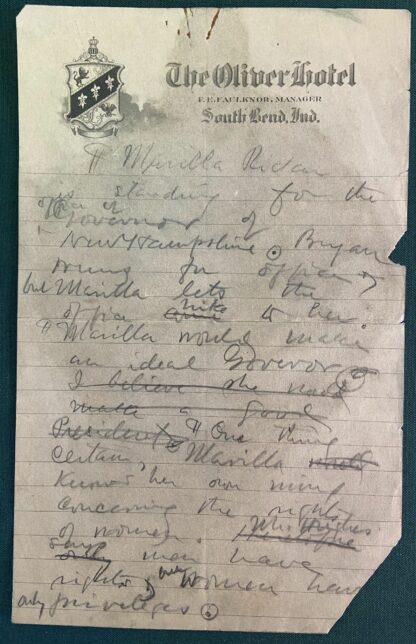 The Oliver Hotel
F. E. FAULKNOR, MANAGER
South Bend, Ind.
¶ Marilla Ricker
is standing for the
office of
Governor of
New Hampshire. Bryan
runs for office,
but Marilla lets the
office hike to her.
¶ Marilla would make
an ideal Governor.
I believe she would
make a good
President. ¶ One thing
certain, Marilla
knows her own mind
concerning the rights
of women. Mr. Hughes
says men have
rights, women have
only privileges.